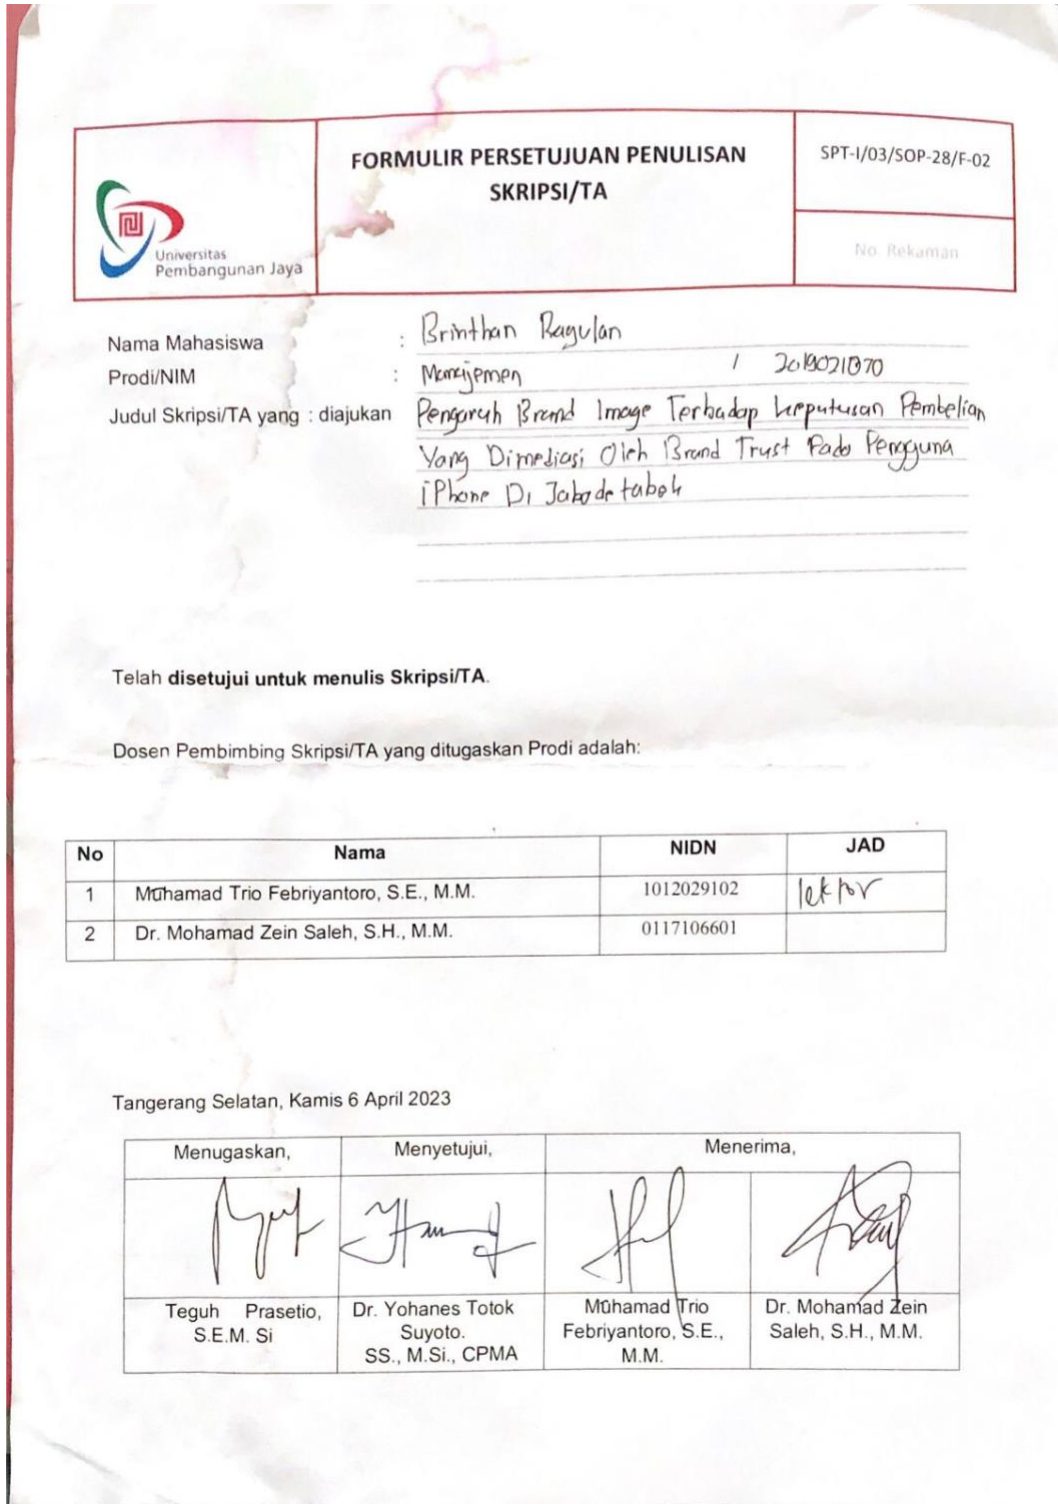 FORMULIR PERSETUJUAN PENULISAN
SKRIPSI/TA
SPT-I/03/SOP-28/F-02
No. Rekaman
Universitas
Pembangunan Jaya
Nama Mahasiswa : Brinthan Ragulan
Prodi/NIM : Manajemen / 2019021070
Judul Skripsi/TA yang : diajukan Pengaruh Brand Image Terhadap Keputusan Pembelian
Yang Dimediasi Oleh Brand Trust Pada Pengguna
iPhone Di Jabodetabek
Telah disetujui untuk menulis Skripsi/TA.
Dosen Pembimbing Skripsi/TA yang ditugaskan Prodi adalah:
No Nama NIDN JAD
1 Muhamad Trio Febriyantoro, S.E., M.M. 1012029102 lektor
2 Dr. Mohamad Zein Saleh, S.H., M.M. 0117106601
Tangerang Selatan, Kamis 6 April 2023
Menugaskan, Menyetujui, Menerima,
Teguh Prasetio, Dr. Yohanes Totok Muhamad Trio Dr. Mohamad Zein
S.E.M. Si Suyoto. Febriyantoro, S.E., Saleh, S.H., M.M.
SS., M.Si., CPMA M.M.